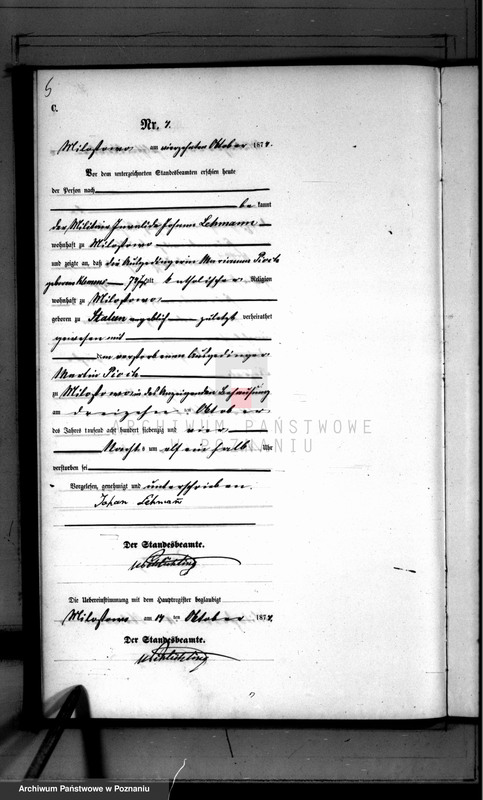 5
C.
Nr. 7.
Milostowo am vierzehnten Oktober 1874.
Vor dem unterzeichneten Standesbeamten erschien heute
der Person nach
be kannt
der Militair Invalide Johann Lehmann
wohnhaft zu Milostowo
und zeigte an, daß die Ausgedingerin Marianna Pioch
geborene 79 Jahr alt katholischer Religion
wohnhaft zu Milostowo
geboren zu angeblich zuletzt verheirathet
gewesen mit
dem verstorbenen Ausgedinger
Martin Pioch
zu Milostowo in des Anzeigenden Behausung
am dreizehn ten Oktober
des Jahres tausend acht hundert siebenzig und vier
Nachts um elf ein halb Uhr
verstorben sei
Vorgelesen, genehmigt und unterschrieben.
Johan Lehman
Der Standesbeamte.
Die Uebereinstimmung mit dem Hauptregister beglaubigt
Milostowo am 14 ten Oktober 1874.
Der Standesbeamte.
ARCHIWUM PAŃSTWOWE
POZNANIU
Archiwum Państwowe w Poznaniu